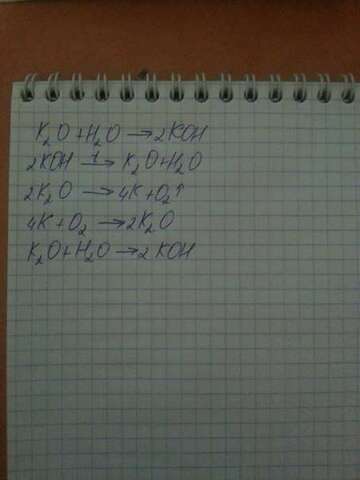 K₂O + H₂O → 2KOH
2KOH —t→ K₂O + H₂O
2K₂O → 4K + O₂↑
4K + O₂ → 2K₂O
K₂O + H₂O → 2KOH